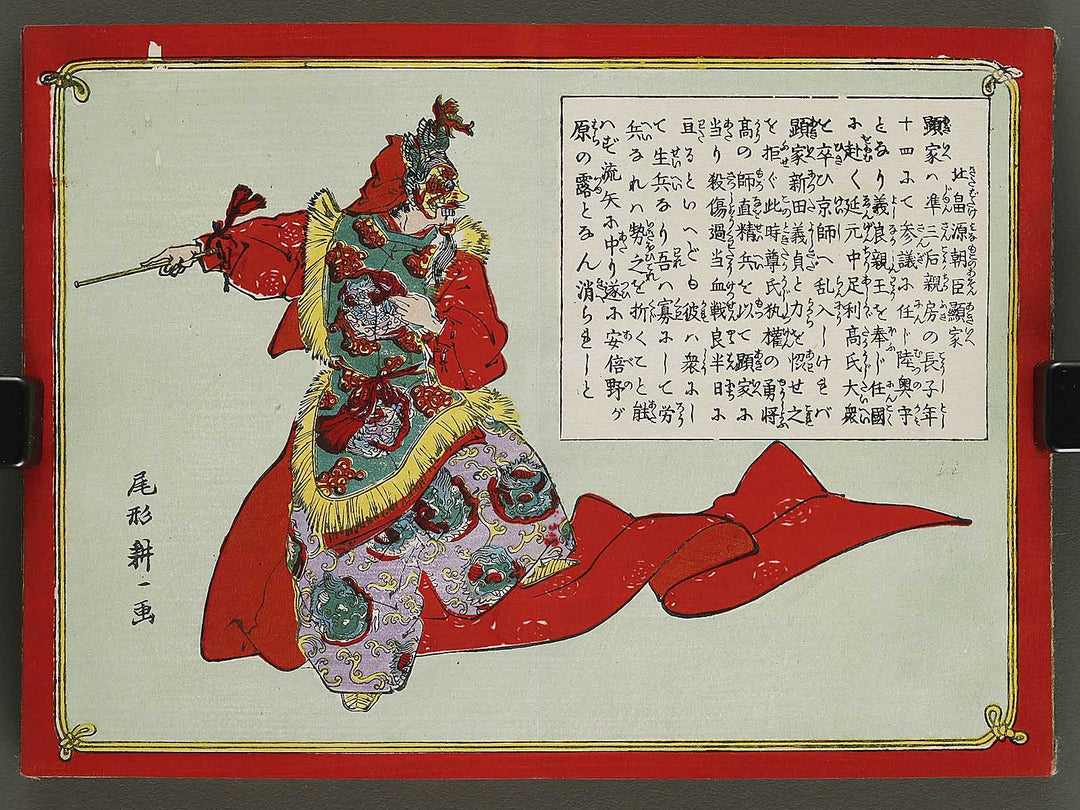 北畠源朝臣顕家
顕家ハ準三后親房の長子年
十四にて参議に任じ陸奥守
となり義良親王を奉じ任國
に赴く延元中足利高氏大衆
を卒ひ京師へ乱入しけれバ
顕家新田義貞と力を惚せ之
を拒ぐ此時尊氏执權の勇将
高の師直精兵を以て顕家に
当り殺傷過当血戦良半日に
亘るといへども彼ハ衆にし
て生兵なり吾ハ寡にして労
兵なれハ勢之を折くこと能
ハず流矢に中り遂に安倍野が
原の露となん消られしと
尾形耕一画